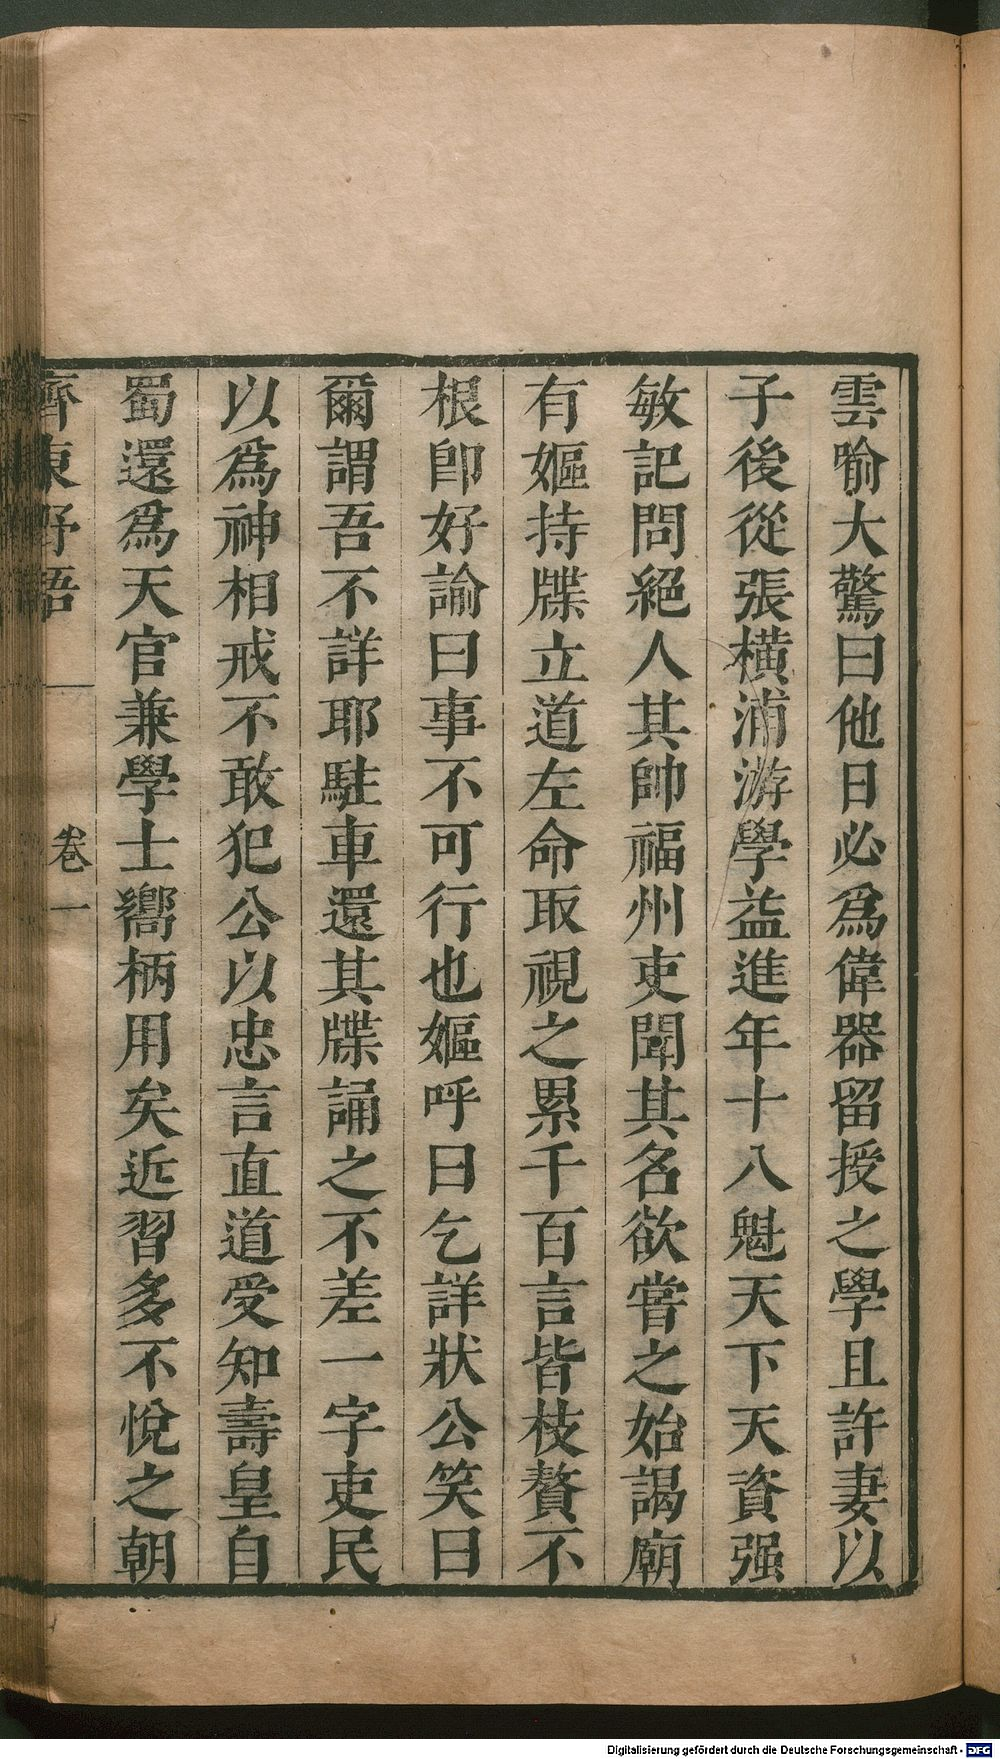 雲喻大驚曰他日必爲偉器留授之學且許妻以
子後從張橫浦游學益進年十八魁天下天資强
敏記問絕人其帥福州吏聞其名欲嘗之始謁廟
有嫗持牒立道左命取視之累千百言皆枝贅不
根卽好諭曰事不可行也嫗呼曰乞詳狀公笑曰
爾謂吾不詳耶駐車還其牒誦之不差一字吏民
以爲神相戒不敢犯公以忠言直道受知壽皇自
蜀還爲天官兼學士嚮柄用矣近習多不悅之朝
齊東野語 卷一
Digitalisierung gefördert durch die Deutsche Forschungsgemeinschaft - DFG